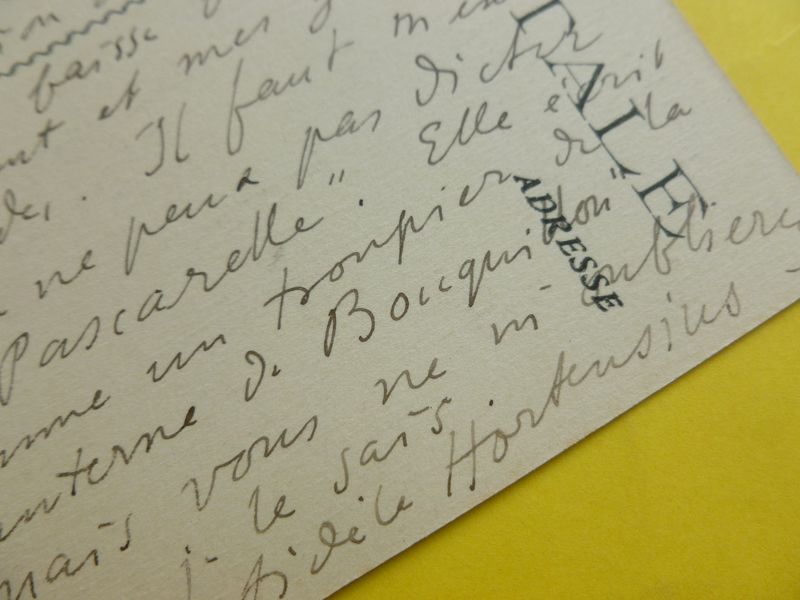 baisse
et mes
Il faut
ne peux pas dicter
Pascarelle". Elle écrit
un troupier de la
de Bocquillon"
mais vous ne m'oublierez
je le sais.
fidèle Hortensius
TALE
ADRESSE